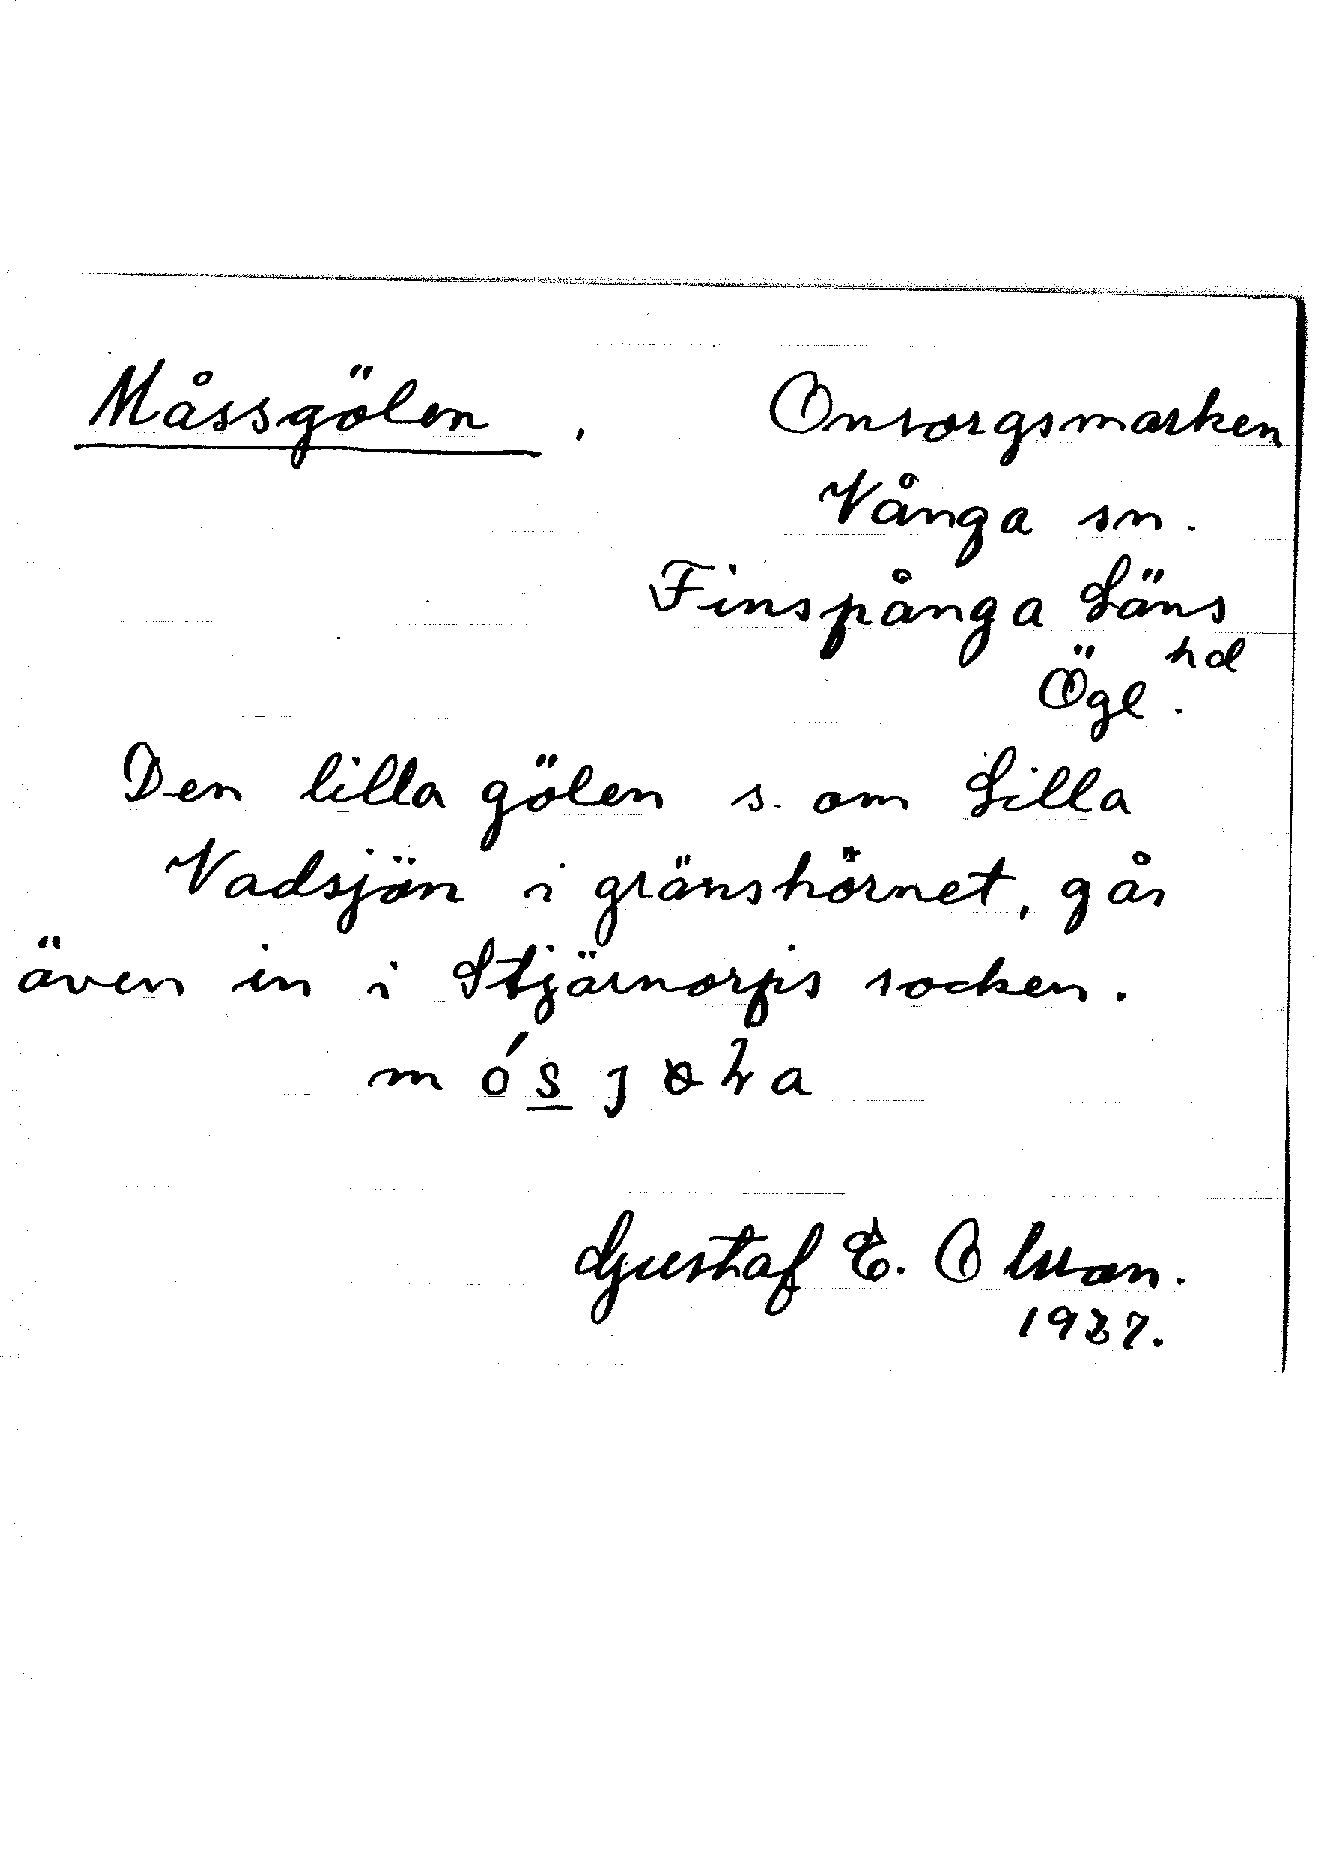 Måssgölen, Onsorgsmarken
Vånga sn.
Finspånga Läns
hd
Ögl.
Den lilla gölen s. om Lilla
Vadsjön i gränshörnet, går
även in i Stjärnorps socken.
Gustaf E. Olsson.
1937.